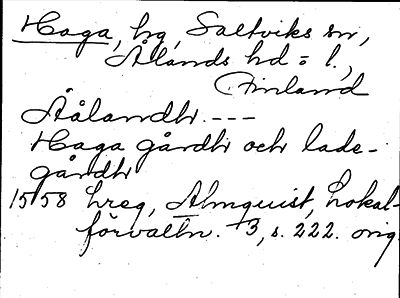 Haga, hg, Saltviks sn,
Ålands hd o l.,
Finland
Åålandh ---
Haga gårdh och lade-
gårdh
1558 hreg, Almquist, Lokal-
förvaltn. 3, s. 222. orig.